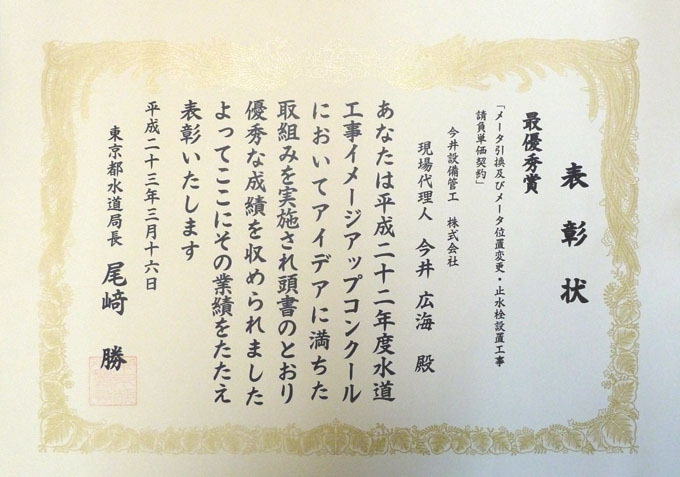 表彰状
最優秀賞
「メータ引換及びメータ位置変更・止水栓設置工事
請負単価契約」
今井設備管工 株式会社
現場代理人 今井 広海 殿
あなたは平成二十二年度水道
工事イメージアップコンクール
においてアイデアに満ちた
取組みを実施され頭書のとおり
優秀な成績を収められました
よってここにその業績をたたえ
表彰いたします
平成二十三年三月十六日
東京都水道局長 尾﨑 勝